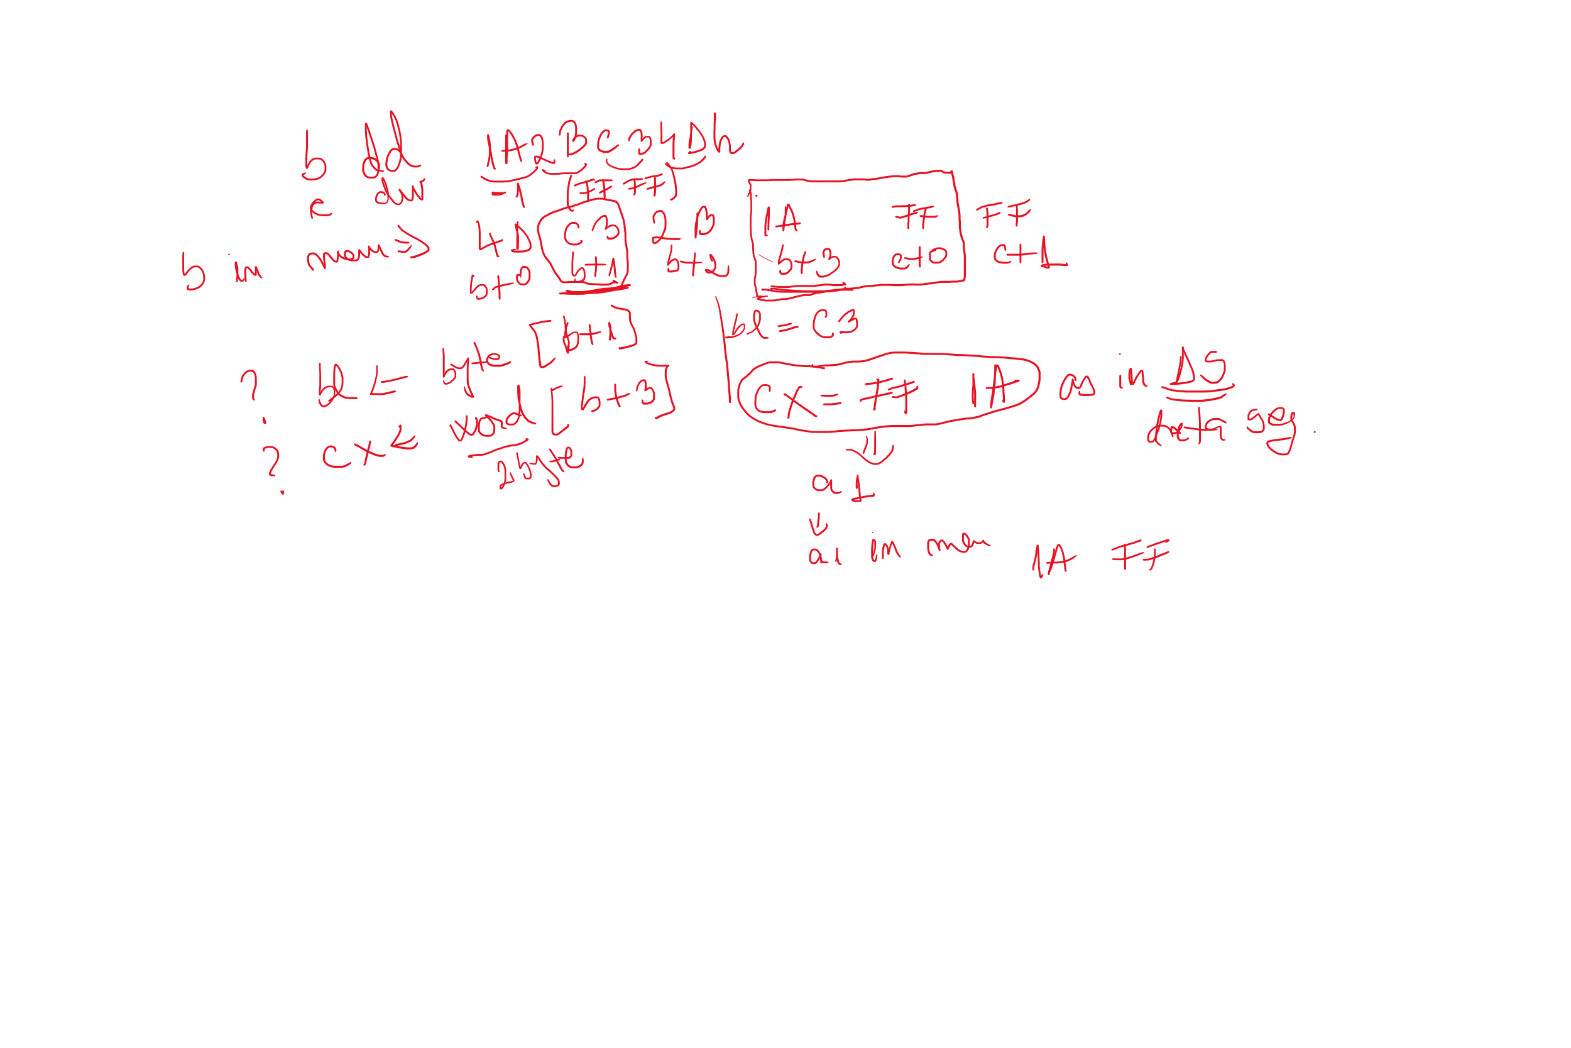 b dd 1A2BC34Dh
c dw -1 [FF FF]
b in mem => 4D C3 2B 1A FF FF
b+0 b+1 b+2 b+3 c+0 c+1
? bl <= byte [b+1]
? cx <= word [b+3]
2byte
bl = C3
CX = FF 1A as in DS
data seg.
a1
a1 in mem 1A FF